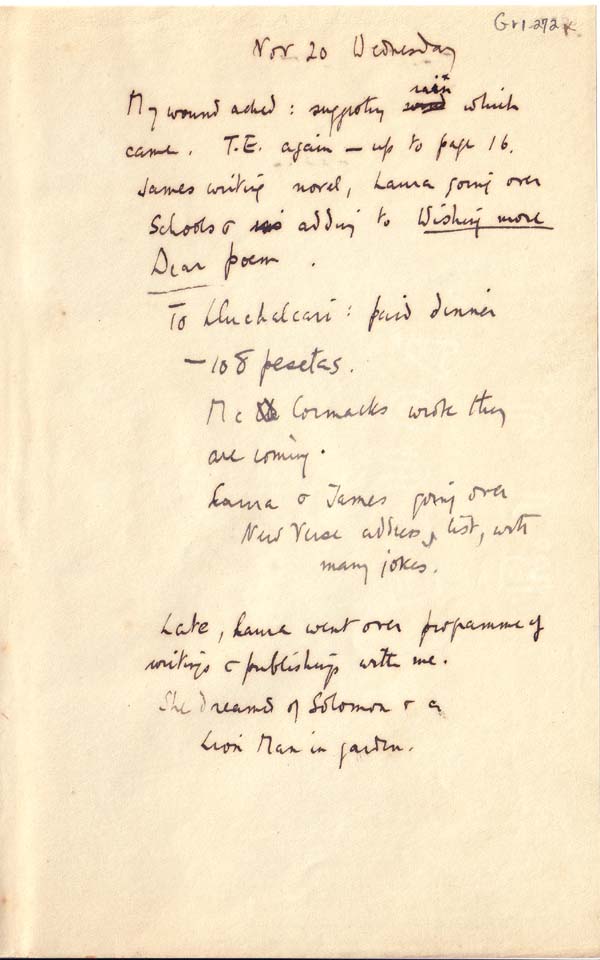 Gr1-272
Nov 20 Wednesday
rain
My wound ached: suggesting which
came. T.E. again – up to page 16.
James writing novel, Laura going over
Schools & adding to Wishing more
Dear poem.
To Lluchalcari: paid dinner
– 108 pesetas.
Mc Cormacks wrote they
are coming.
Laura & James going over
New Verse address list, with
many jokes.
Late, Laura went over programme of
writings & publishings with me.
She dreamed of Solomon & a
Lion Man in garden.